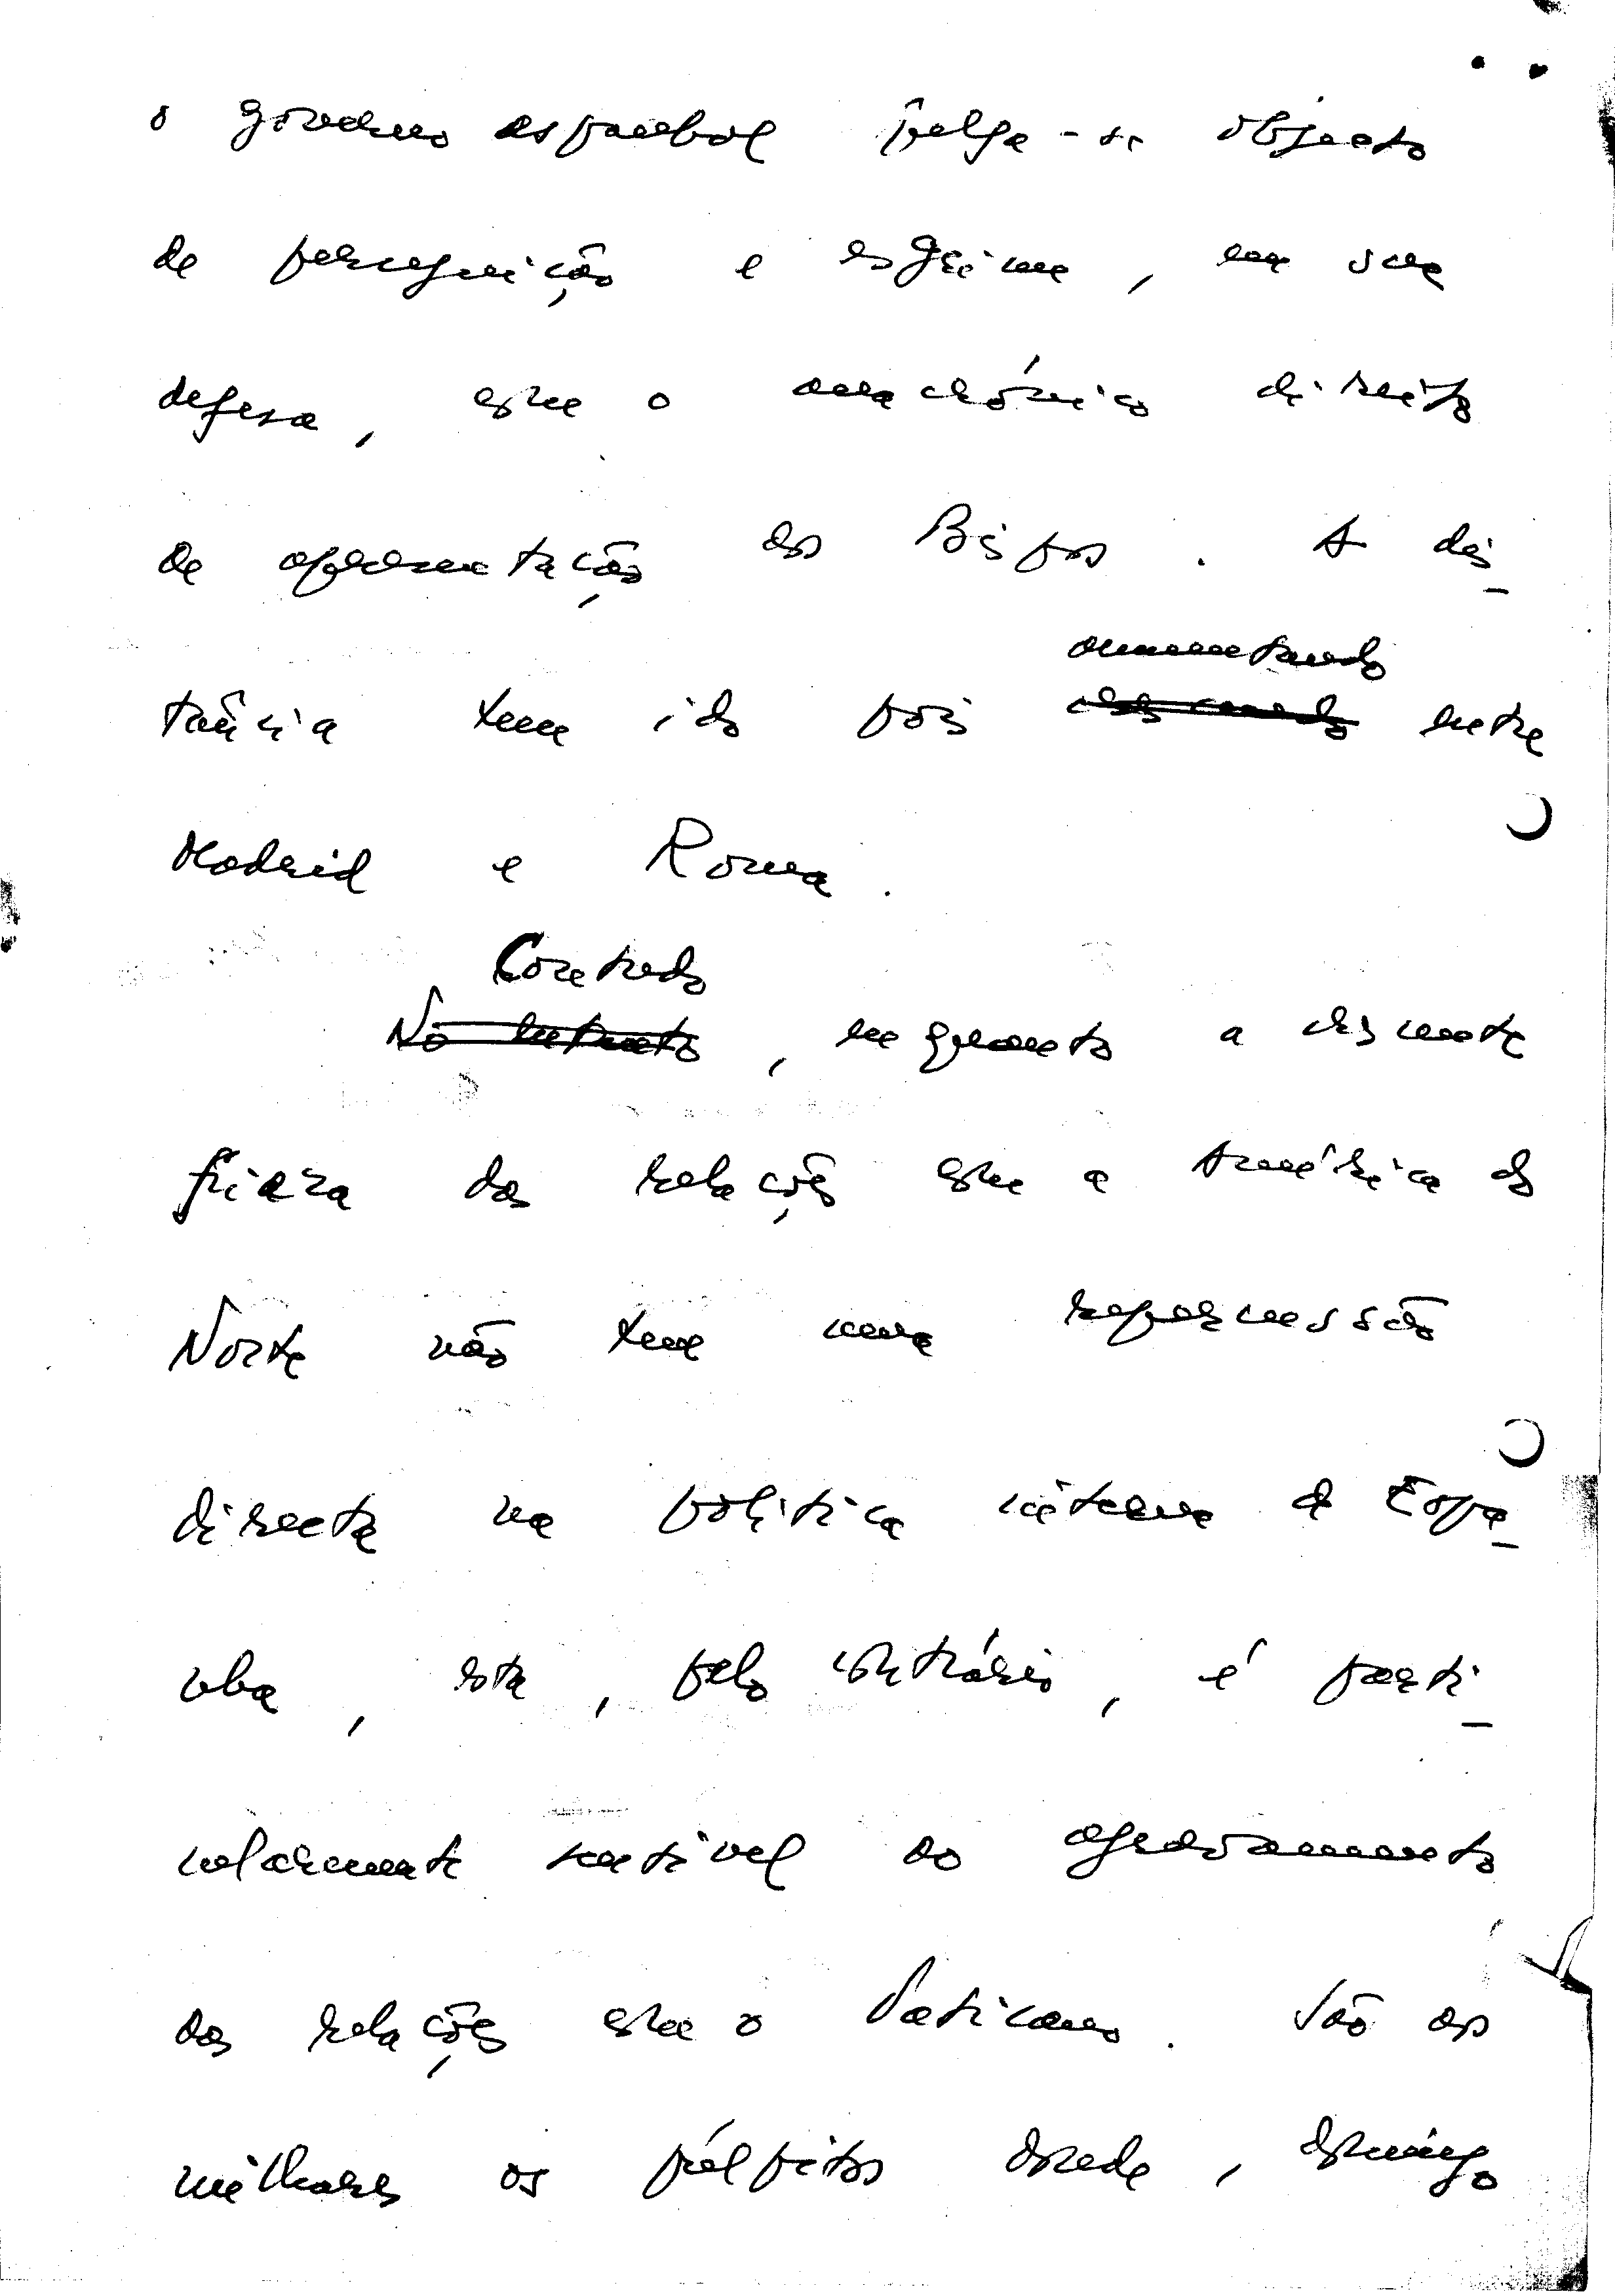 o governo espanhol julga-se objecto
de perseguição e esgrime, em sua
defesa, com o anacrónico direito
de apresentação dos Bispos. A dis_
aumentando
tância tem ido pois entre
Madrid e Roma.
Contudo
No entanto, enquanto a crescente
frieza das relações com a América do
Norte não tem uma repercussão
directa na política interna de Espa_
nha, esta, pelo contrário, é parti_
cularmente sensível ao agravamento
das relações com o Vaticano. São aos
milhares os púlpitos onde, domingo